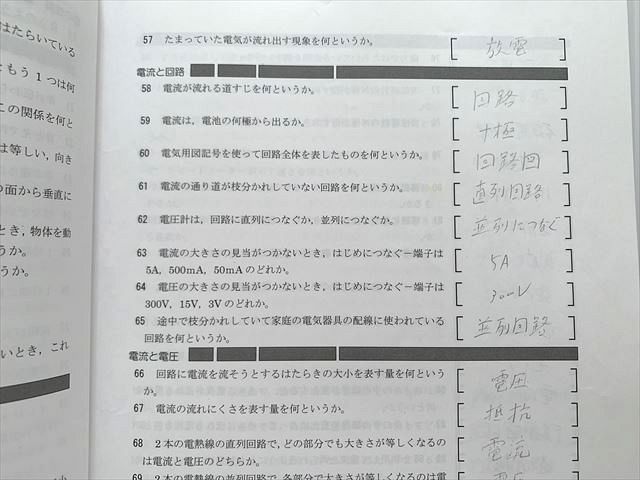 はたらいている
ともう1つは何
この関係を何と
は等しい，向き
の面から垂直に
とき，物体を動
うか。
うか。
ないとき，これ
57 たまっていた電気が流れ出す現象を何というか。 [ 放電 ]
電流と回路
58 電流が流れる道すじを何というか。 [ 回路 ]
59 電流は，電池の何極から出るか。 [ +極 ]
60 電気用図記号を使って回路全体を表したものを何というか。 [ 回路図 ]
61 電流の通り道が枝分かれしていない回路を何というか。 [ 直列回路 ]
62 電圧計は，回路に直列につなぐか，並列につなぐか。 [ 並列につなぐ ]
63 電流の大きさの見当がつかないとき，はじめにつなぐ－端子は
5A，500mA，50mAのどれか。 [ 5A ]
64 電圧の大きさの見当がつかないとき，はじめにつなぐ－端子は
300V，15V，3Vのどれか。 [ 300V ]
65 途中で枝分かれしていて家庭の電気器具の配線に使われている
回路を何というか。 [ 並列回路 ]
電流と電圧
66 回路に電流を流そうとするはたらきの大小を表す量を何という
か。 [ 電圧 ]
67 電流の流れにくさを表す量を何というか。 [ 抵抗 ]
68 2本の電熱線の直列回路で，どの部分でも大きさが等しくなるの
は電流と電圧のどちらか。 [ 電流 ]
69 2本の電熱線の並列回路で，各部分で大きさが等しくなるのは電